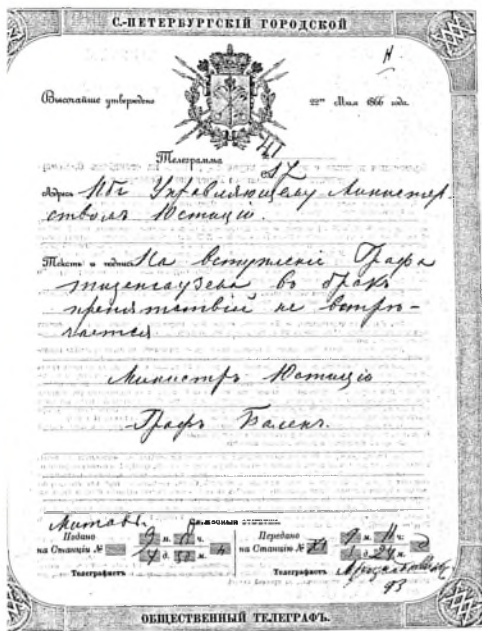 С.-ПЕТЕРБУРГСКІЙ ГОРОДСКОЙ
Н.
Высочайше утверждено
22го Мая 1866 года.
41
Телеграмма
Адресъ Пбг Управляющему Министер-
ствомъ Юстиціи.
Текстъ и подпись На вступленіе Графа
Тизенгаузена въ бракъ
препятствій не встрѣ-
чается
Министръ Юстиціи
Графъ Паленъ.
Митавы
Подано
на Станціи №
м. ч.
д. м.
Телеграфистъ
Передано
на Станцію №
м. ч.
д. 24 м.
Телеграфистъ
93
ОБЩЕСТВЕННЫЙ ТЕЛЕГРАФЪ.